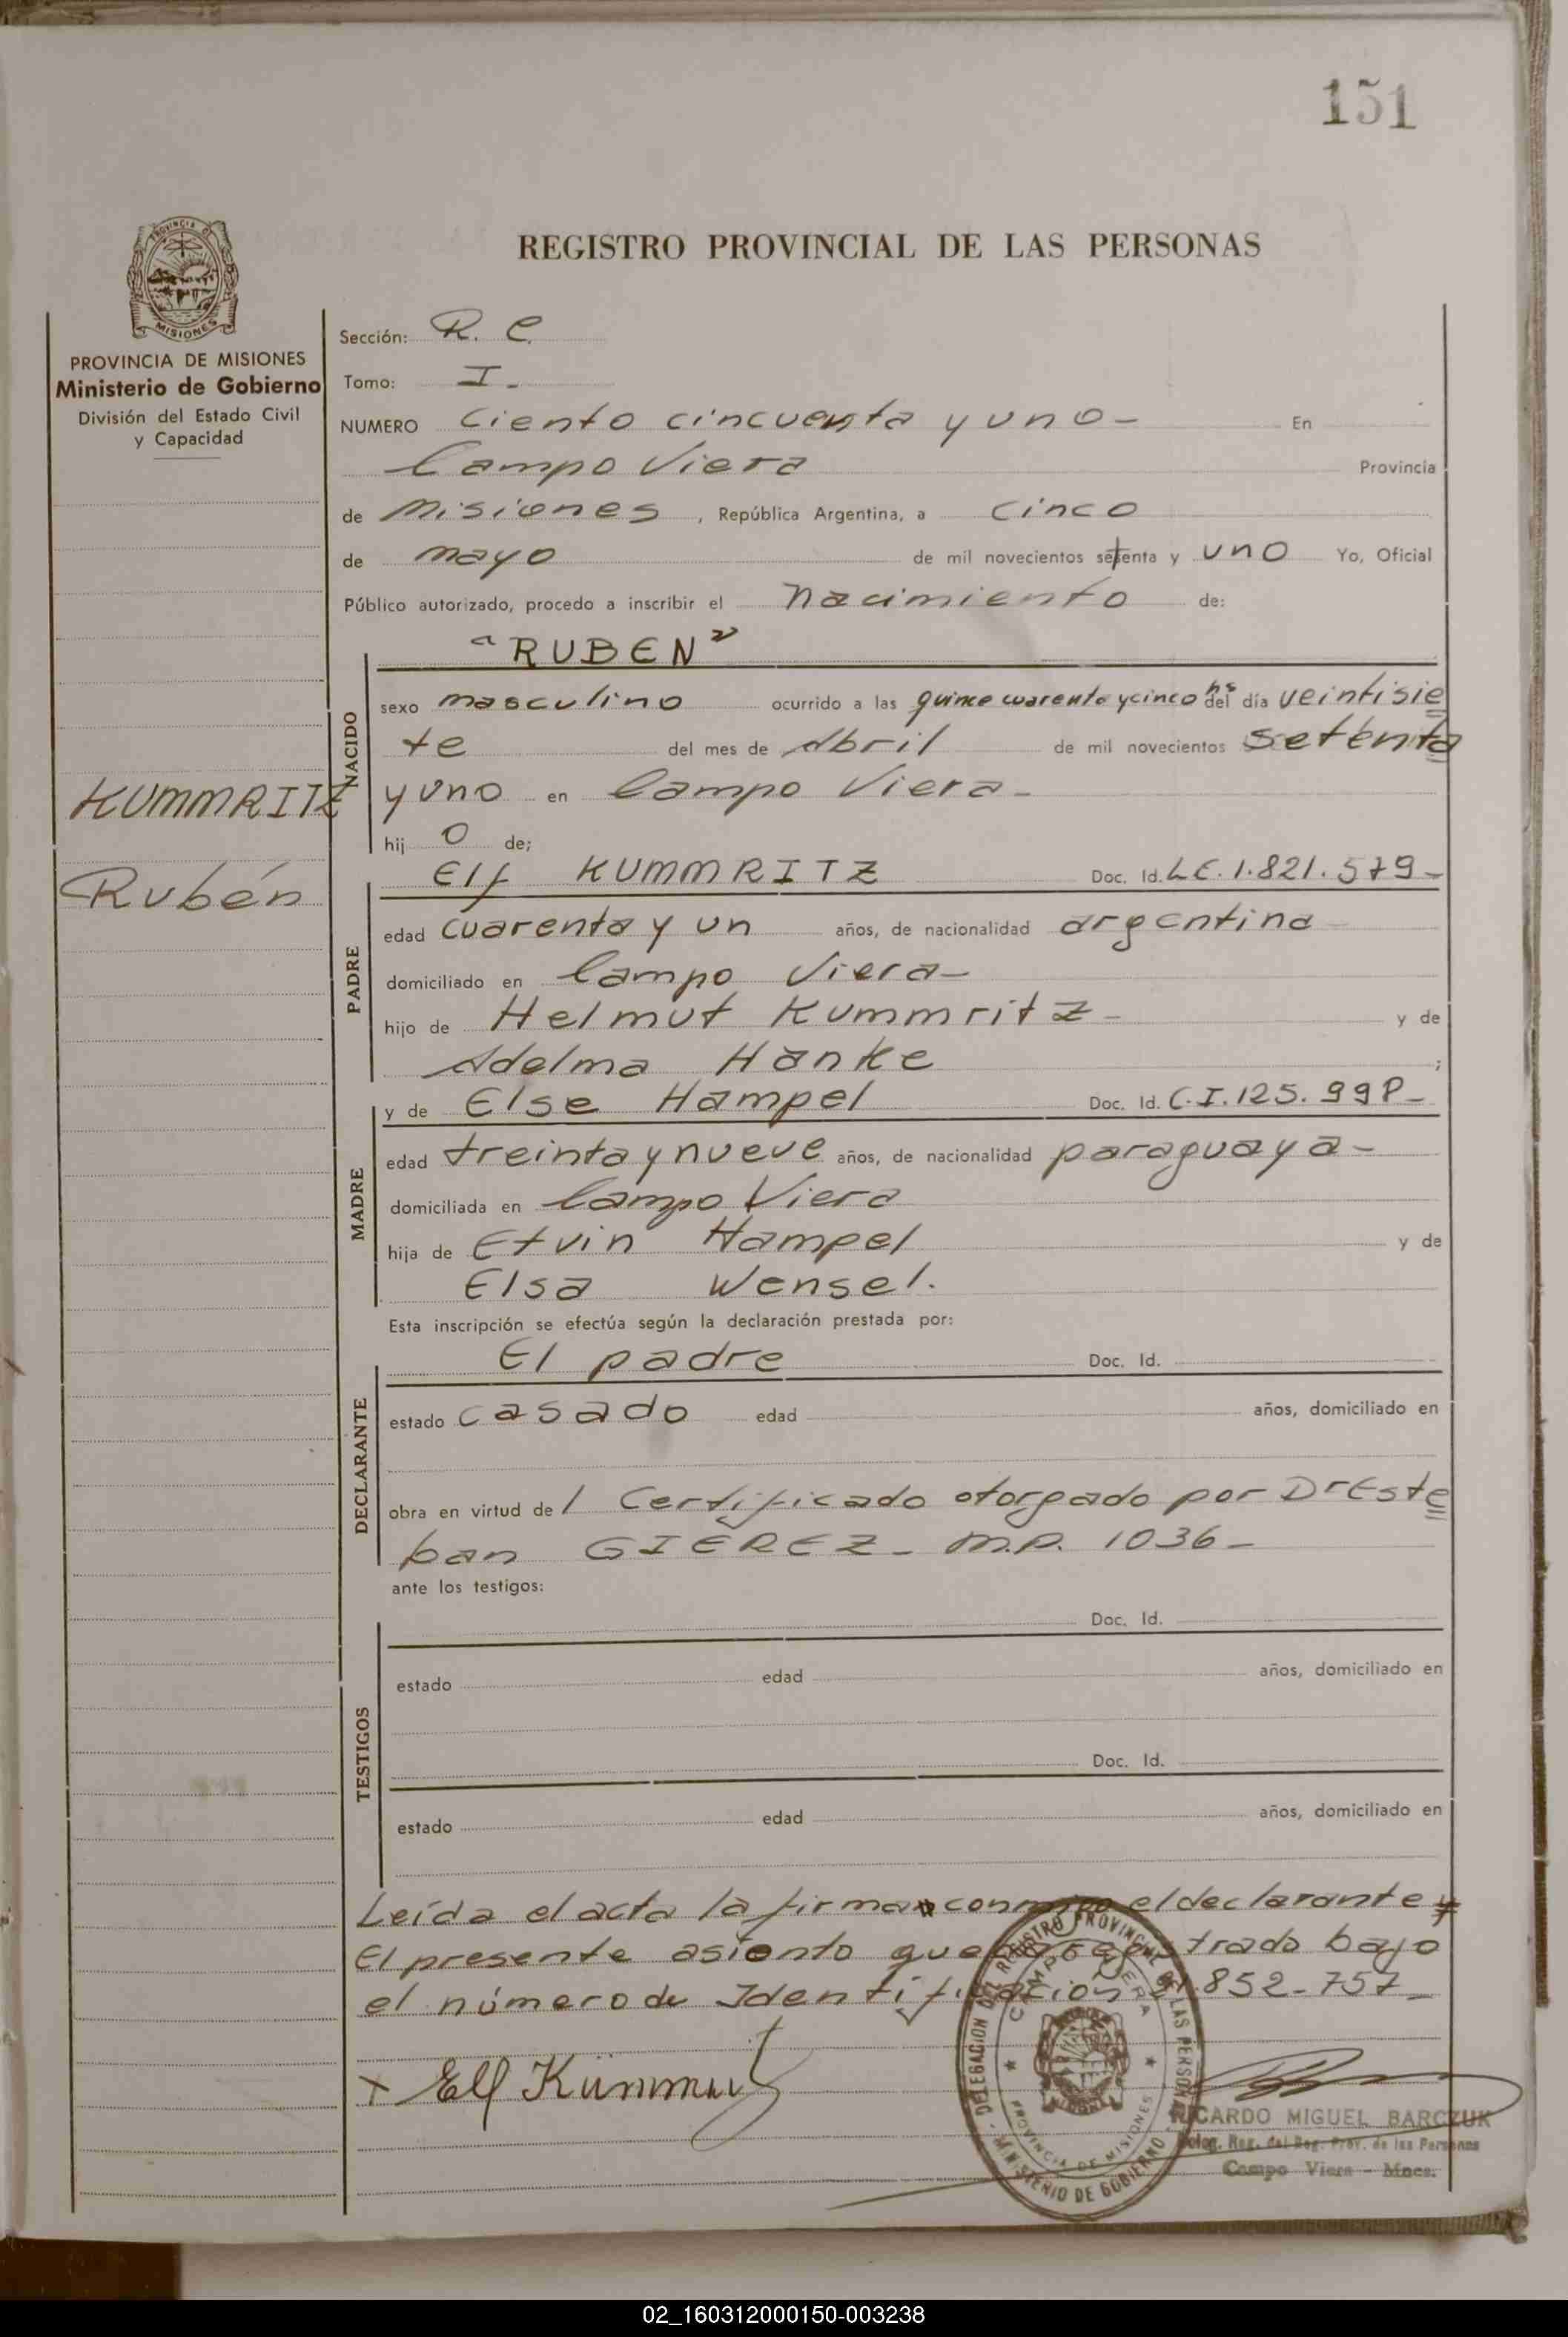 151
REGISTRO PROVINCIAL DE LAS PERSONAS
PROVINCIA DE MISIONES
Ministerio de Gobierno
División del Estado Civil
y Capacidad
KUMMRITZ
Rubén
Sección: R. C.
Tomo: I-
NUMERO Ciento cincuenta y uno- En
Campo Viera Provincia
de Misiones, República Argentina, a cinco
de mayo de mil novecientos setenta y uno Yo, Oficial
Público autorizado, procedo a inscribir el nacimiento de:
"RUBEN"
NACIDO
sexo masculino ocurrido a las quince cuarenta y cinco hs del día veintisie
te del mes de Abril de mil novecientos setenta
y uno en Campo Viera-
hij o de;
Elf KUMMRITZ Doc. Id. L.E. 1.821.579-
PADRE
edad cuarenta y un años, de nacionalidad argentina
domiciliado en Campo Viera-
hijo de Helmut Kummritz- y de
Adelma Hanke ;
y de Else Hampel Doc. Id. C.I. 125.998-
MADRE
edad treinta y nueve años, de nacionalidad paraguaya-
domiciliada en Campo Viera
hija de Etvin Hampel y de
Elsa Wensel.
Esta inscripción se efectúa según la declaración prestada por:
El padre Doc. Id.
DECLARANTE
estado casado edad años, domiciliado en
obra en virtud de l Certificado otorgado por Dr Este
ban GIEREZ- M.P. 1036-
ante los testigos:
Doc. Id.
TESTIGOS
estado edad años, domiciliado en
Doc. Id.
estado edad años, domiciliado en
Leída el acta la firma conmigo el declarante
El presente asiento queda registrado bajo
el número de Identificación 21.852-757-
x Elf Kümmritz
DELEGACION DEL REGISTRO PROVINCIAL DE LAS PERSONAS
CAMPO VIERA
PROVINCIA DE MISIONES
MINISTERIO DE GOBIERNO
RICARDO MIGUEL BARCZUK
Deleg. Reg. del Reg. Prov. de las Personas
Campo Viera - Mnes.
02_160312000150-003238